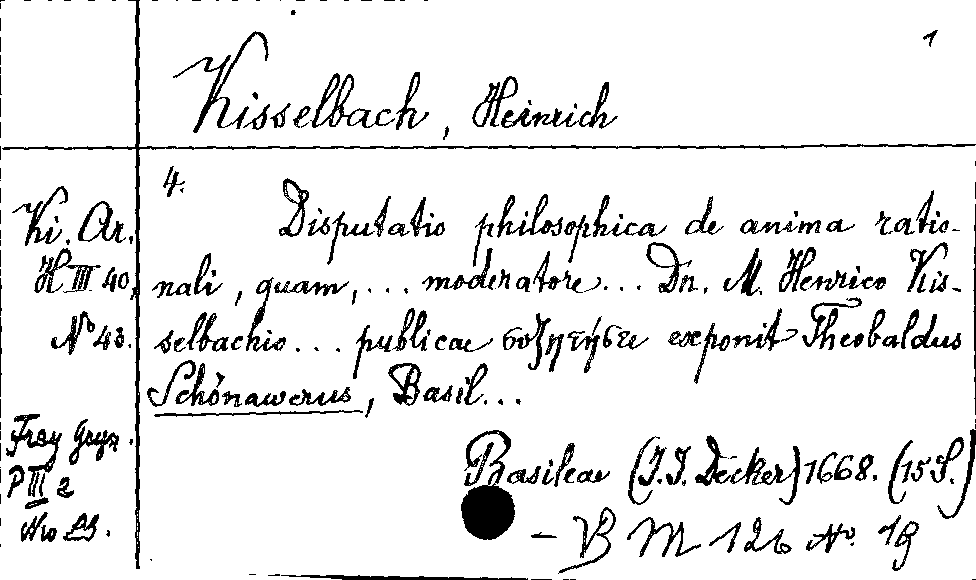 1
Kisselbach, Heinrich
4.
Disputatio philosophica de anima ratio-
nali, quam, ... moderatore ... Dn. M. Henrico Kis-
selbachio ... publicae συζητήσει exponit Theobaldus
Schönawerus, Basil...
Basileae (J.J. Decker) 1668. (15 S.)
– V B M 126 No. 19
Ki. Ar.
H III 40,
No 43.
Frey Gryn.
P III 2
Nro